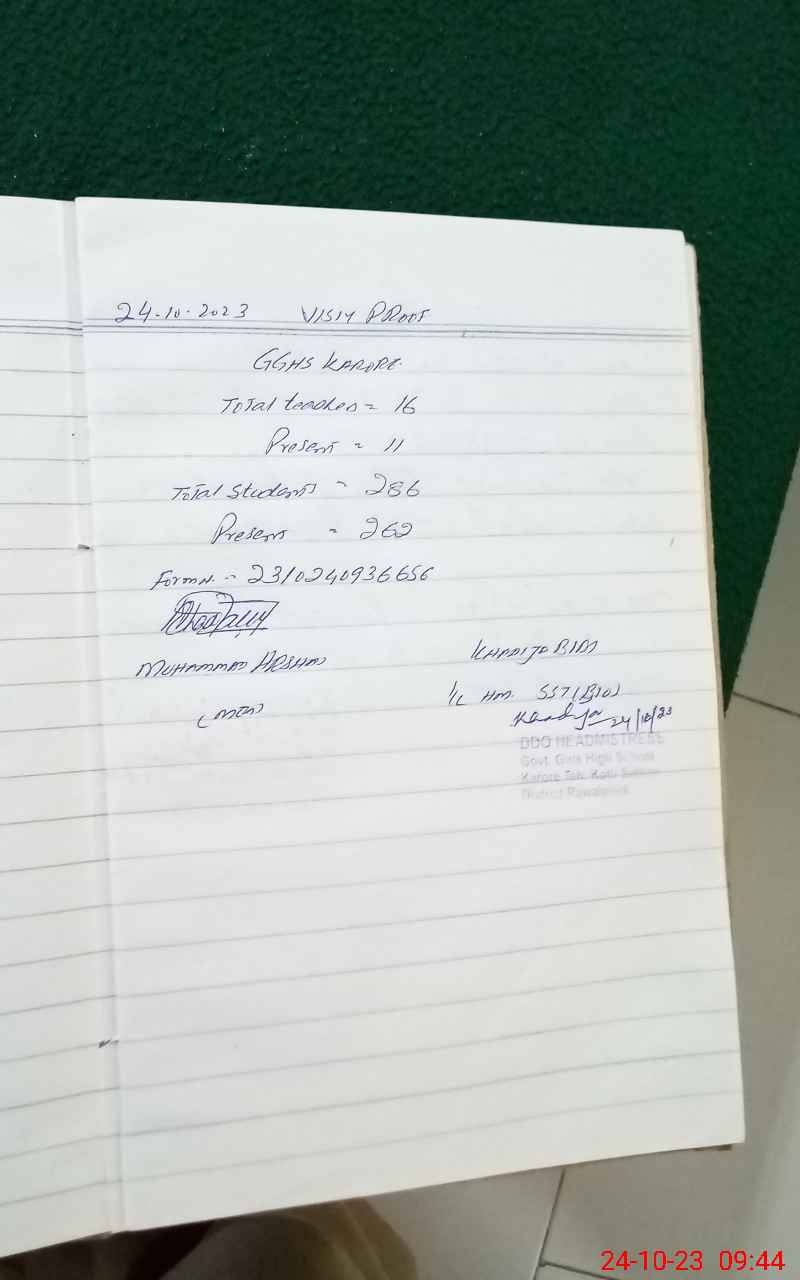 24-10-2023 VISIT PROOF
GGHS KARORE.
Total teacher = 16
Present = 11
Total Students = 286
Present = 262
Form N. = 2310240936656
MUHAMMAD ARSHAD
KHADIJA BIBI
(MEA)
I/C HM. SST (BIO)
Khadija 24/10/23
DDO HEADMISTRESS
Govt. Girls High School
Karore Teh. Kotli Sattian
District Rawalpindi
24-10-23 09:44